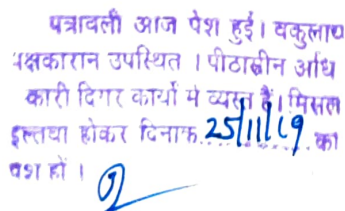 पत्रावली आज पेश हुई। वकुलाय
पक्षकारान उपस्थित । पीठासीन अधि
कारी दिगर कार्यो मे व्यस्त है। मिसल
इल्तवा होकर दिनांक 25/11/19 का
पेश हों ।